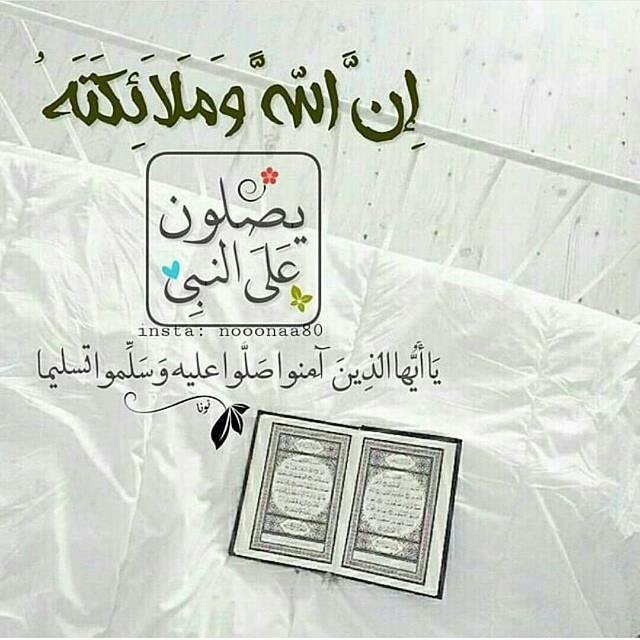 إِنَّ اللّهَ وَمَلَائِكَتَهُ
يصلون
عَلَى النبِي
insta: nooonaa80
يَا أَيُّها الذِينَ آمنوا صَلَّوا عليه وَسَلِّموا تسليما
نونا